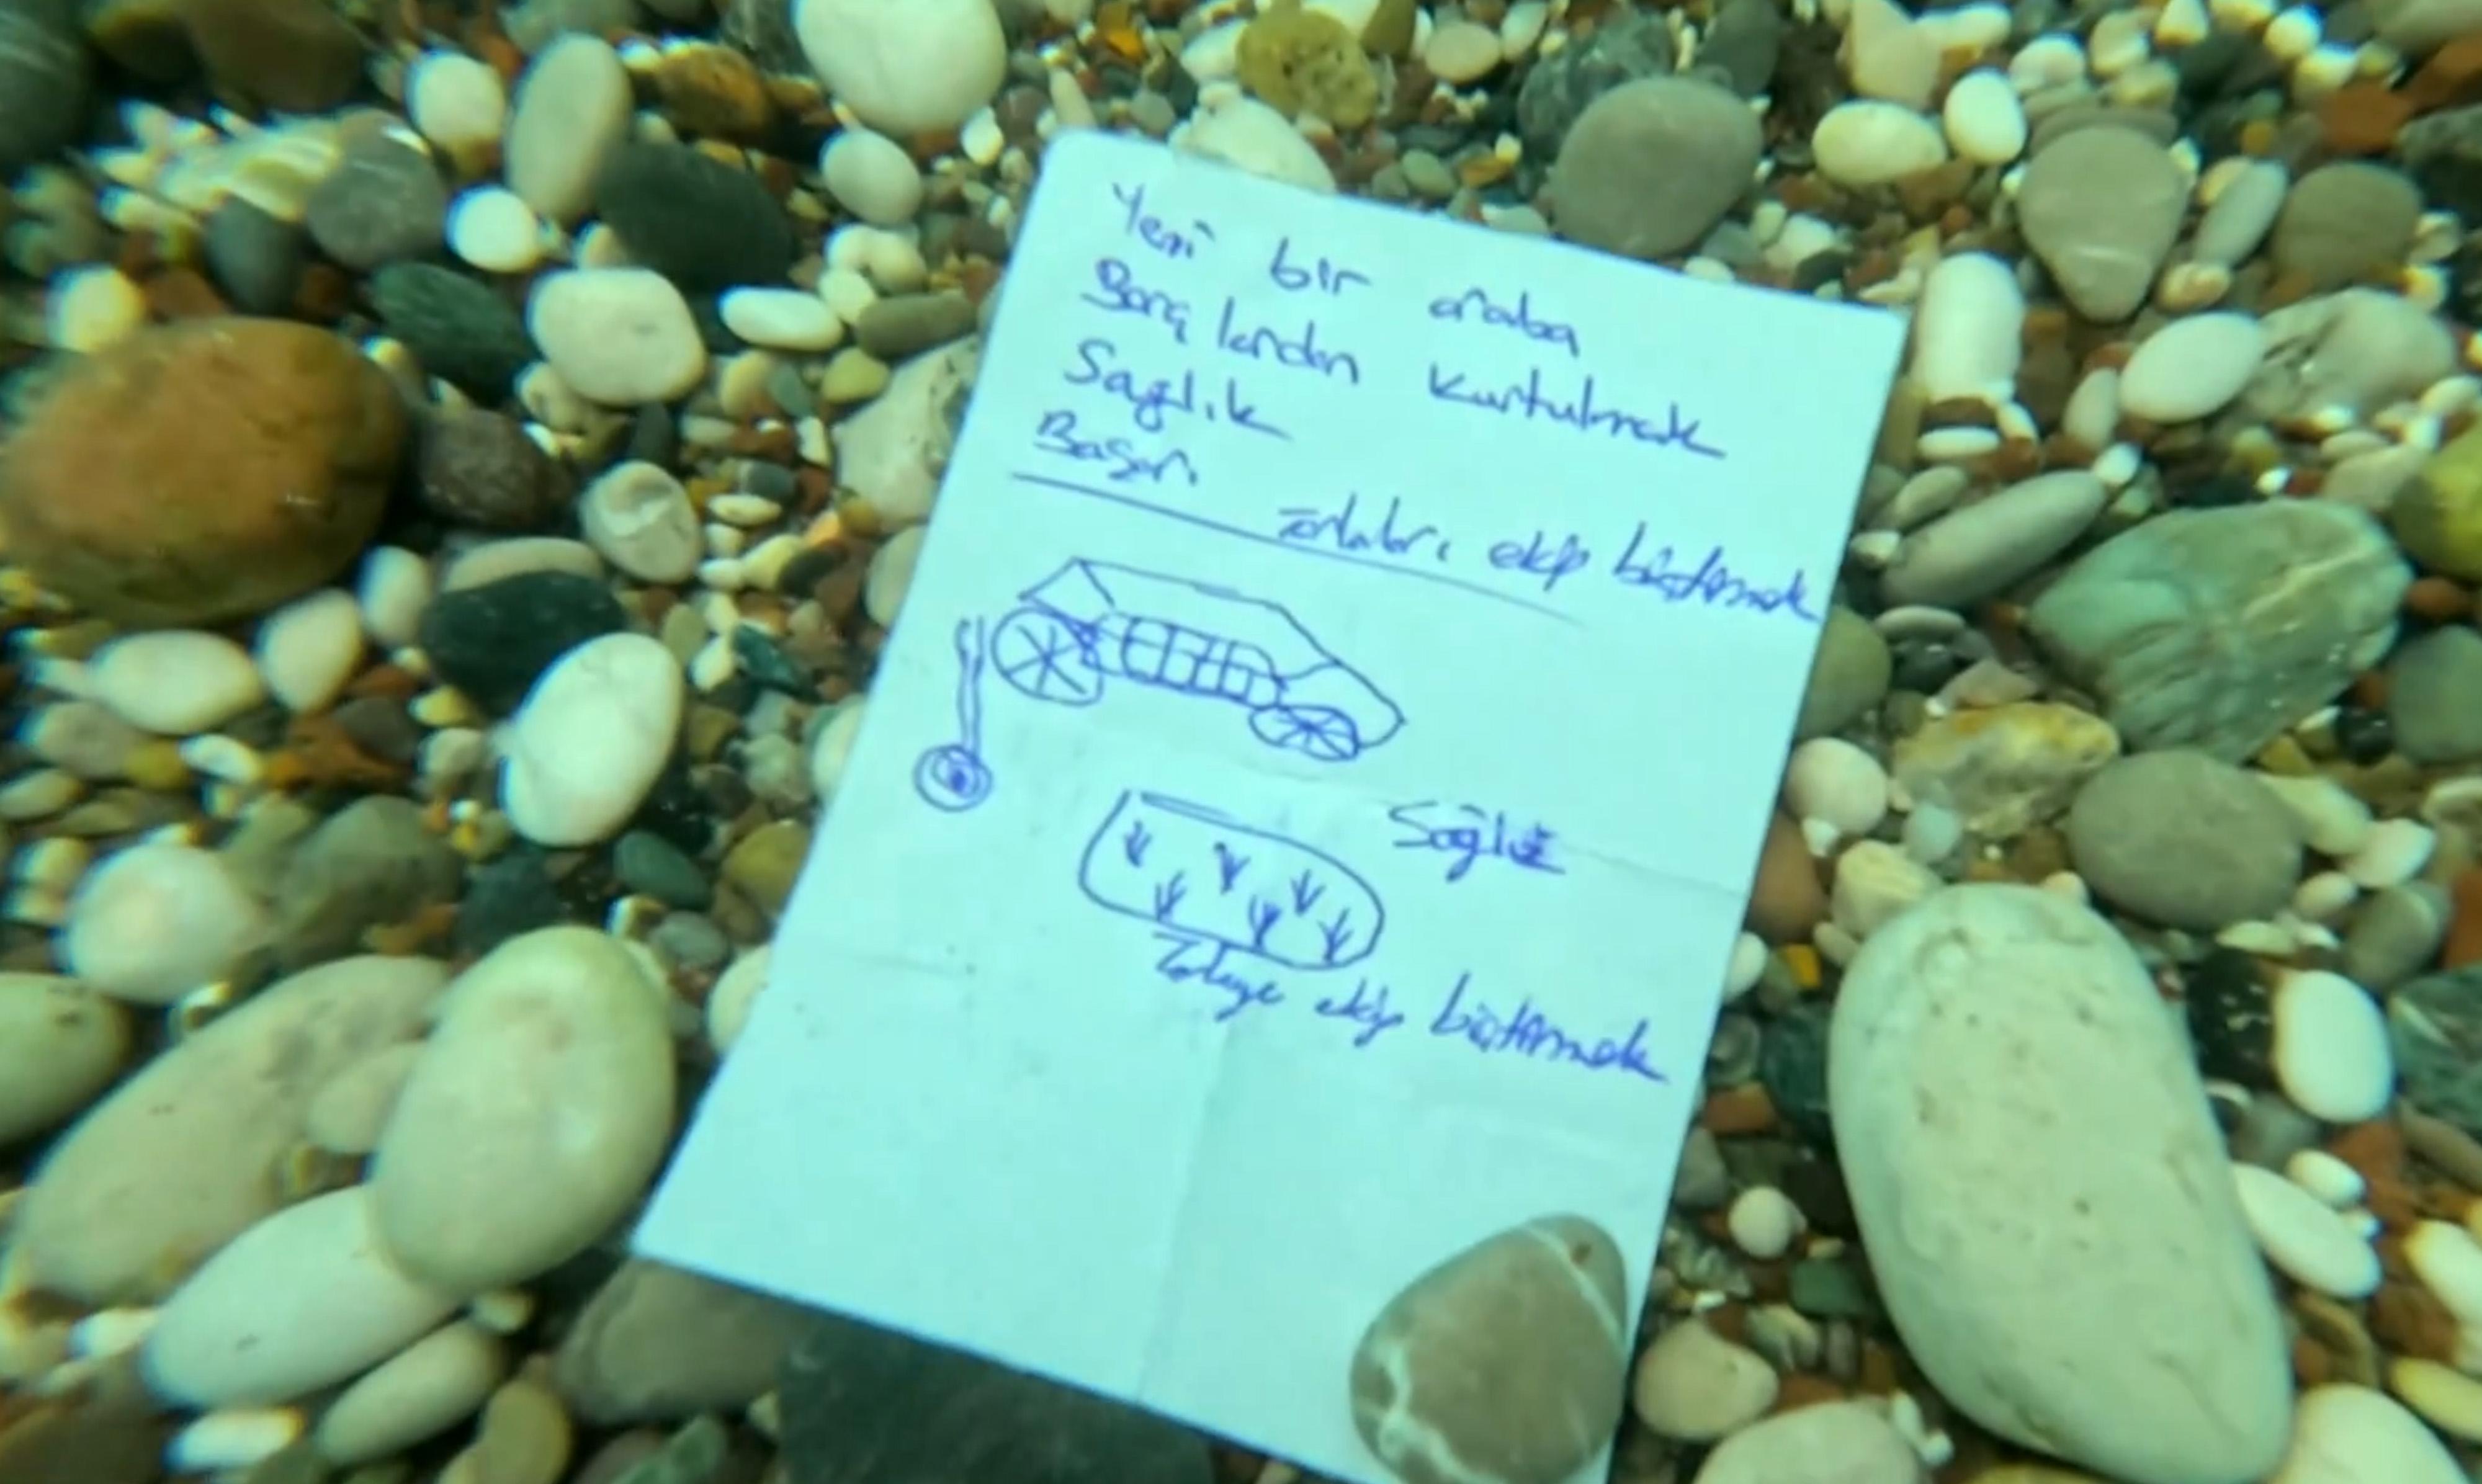 Yeni bir araba
Borçlardan kurtulmak
Sağlık
Başarı
Tarları ekip biçtirmek
Sağlık
Tarlaya ekip biçtirmek